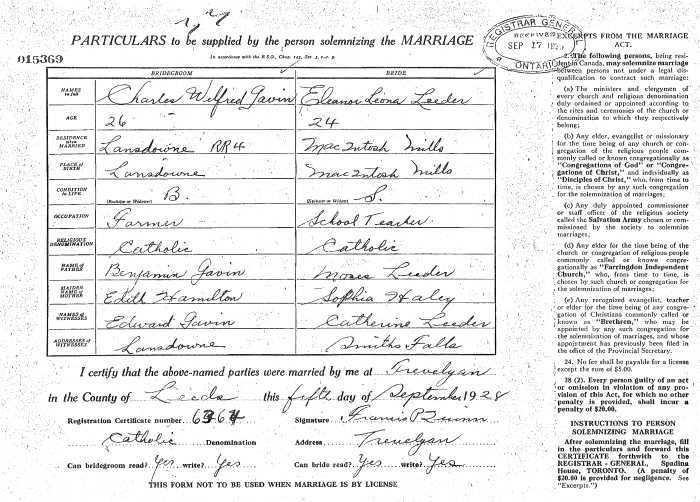 PARTICULARS to be supplied by the person solemnizing the MARRIAGE
REGISTRAR GENERAL
RECEIVED
SEP 17
ONTARIO
015369
BRIDEGROOM BRIDE
NAMES in full Charles Wilfred Gavin Eleanor Liona Leeder
AGE 26 24
RESIDENCE when MARRIED Lansdowne RR4 MacIntosh Mills
PLACE OF BIRTH Lansdowne MacIntosh Mills
CONDITION IN LIFE B. S.
(Bachelor or Widower) (Spinster or Widow)
OCCUPATION Farmer School Teacher
RELIGIOUS DENOMINATION Catholic Catholic
NAME OF FATHER Benjamin Gavin Moses Leeder
MAIDEN NAME OF MOTHER Edith Hamilton Sophia Haley
NAMES OF WITNESSES Edward Gavin Catherine Leeder
ADDRESSES OF WITNESSES Lansdowne Smiths Falls
I certify that the above-named parties were married by me at Trevelyan
in the County of Leeds this fifth day of September 1928
Registration Certificate number 6364 Signature Francis P Quinn
Catholic Denomination Address Trevelyan
Can bridegroom read? Yes write? Yes Can bride read? Yes write? Yes
THIS FORM NOT TO BE USED WHEN MARRIAGE IS BY LICENSE
EXCERPTS FROM THE MARRIAGE
ACT.
2. The following persons, being resi-
dent in Canada, may solemnize marriage
between persons not under a legal dis-
qualification to contract such marriage:
(a) The ministers and clergymen of
every church and religious denomination
duly ordained or appointed according to
the rites and ceremonies of the church or
denomination to which they respectively
belong;
(b) Any elder, evangelist or missionary
for the time being of any church or con-
gregation of the religious people com-
monly called or known congregationally as
"Congregations of God" or "Congre-
gations of Christ," and individually as
"Disciples of Christ," who, from time to
time, is chosen by any such congregation
for the solemnization of marriages;
(c) Any duly appointed commissioner
or staff officer of the religious society
called the Salvation Army chosen or com-
missioned by the society to solemnize
marriages;
(d) Any elder for the time being of the
church or congregation of religious people
commonly called or known congre-
gationally as "Farringdon Independent
Church," who, from time to time, is
chosen by such church or congregation for
the solemnization of marriages;
(e) Any recognized evangelist, teacher
or elder for the time being of any congre-
gation of Christians commonly called or
known as "Brethren," who may be
appointed by any such congregation for
the solemnization of marriages, and whose
appointment has previously been filed in
the office of the Provincial Secretary.
24. No fee shall be payable for a license
except the sum of $5.00.
38 (2). Every person guilty of an act
or omission in violation of any pro-
vision of this Act, for which no other
penalty is provided, shall incur a
penalty of $20.00.
INSTRUCTIONS TO PERSON
SOLEMNIZING MARRIAGE
After solemnizing the marriage, fill
in the particulars and forward this
CERTIFICATE forthwith to the
REGISTRAR-GENERAL, Spadina
House, TORONTO. (A penalty of
$20.00 is provided for negligence. See
"Excerpts.")